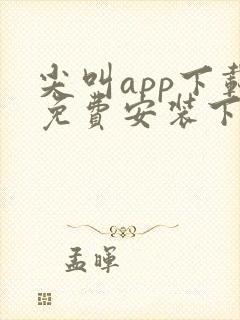 尖叫app下载
免费安装下
孟晖